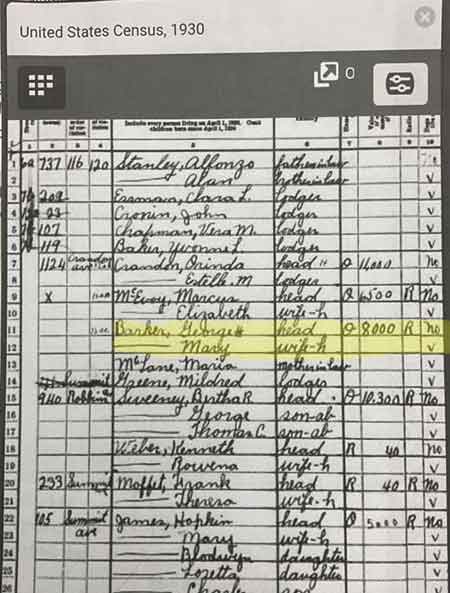 United States Census, 1930
0
Include every person living on April 1, 1930. Omit
children born since April 1, 1930
1 2 3 4 5 6 7 8 9 10
1 737 116 120 Stanley, Alfonzo father in law
2 Alan brother in law V
3 209 Clara L. lodger V
4 23 Cronin, John lodger V
5 107 Chapman, Vera M. lodger V
6 119 Baker, Yvonne L. lodger V
7 1124 Crandon ave Crandon, Orinda head O 11,000 No
8 Estelle M lodger V
9 x McEvoy, Marcus head O 6500 R No
10 Elizabeth wife-h V
11 Barker, George head O 8000 R no
12 Mary wife-h V
13 McLane, Maria mother in law V
14 Summit Greene, Mildred lodger V
15 940 Robbins Sweeney, Bertha R. head O 10,300 R No
16 George son-ab V
17 Thomas C. son-ab V
18 Weber, Kenneth head R 40 No
19 Rowena wife-h V
20 293 Summit Moffet, Frank head R 40 R No
21 Theresa wife-h V
22 105 Summit ave James, Hopkin head O 5000 R No
23 Mary wife-h V
24 Blodwyn daughter V
25 Loretta daughter V
26 son